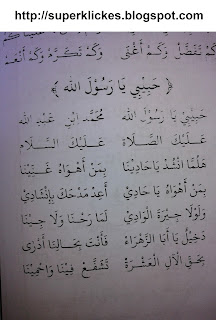 http://superklickes.blogspot.com
كُمْ تَفَضَّلْ وَكُمْ أَغْنَى وَكُمْ تَكَرَّمْ وَكُمْ أَنْعَمْ
﴿ حَبِيْبِي يَا رَسُوْلَ الله ﴾
حَبِيْبِي يَا رَسُوْلَ الله مُحَمَّد ابْنِ عَبْدِ الله
عَلَيْكَ الصَّلَاة عَلَيْكَ السَّلَام
هَلُمَّا انْشُدْ يَاحَادِيْنَا بِمَنْ أَهْوَاهُ غَنِيْنَا
بِمَنْ أَهْوَاهُ يَا حَادِيْ أَعِدْ مَدْحَكْ بِإِنْشَادِيْ
وَلَوْلَا جِيْرَةُ الْوَادِيْ لَمَا رَحْنَا وَلَا جِيْنَا
دَخِيْلْ يَا أَبَا الزَّهْرَاءْ فَأَنْتَ بِحَالِنَا أَدْرَى
بِحَقِ الْآلِ الْعَشْرَةْ تَشَفَّعْ فِيْنَا وَاحْمِيْنَا